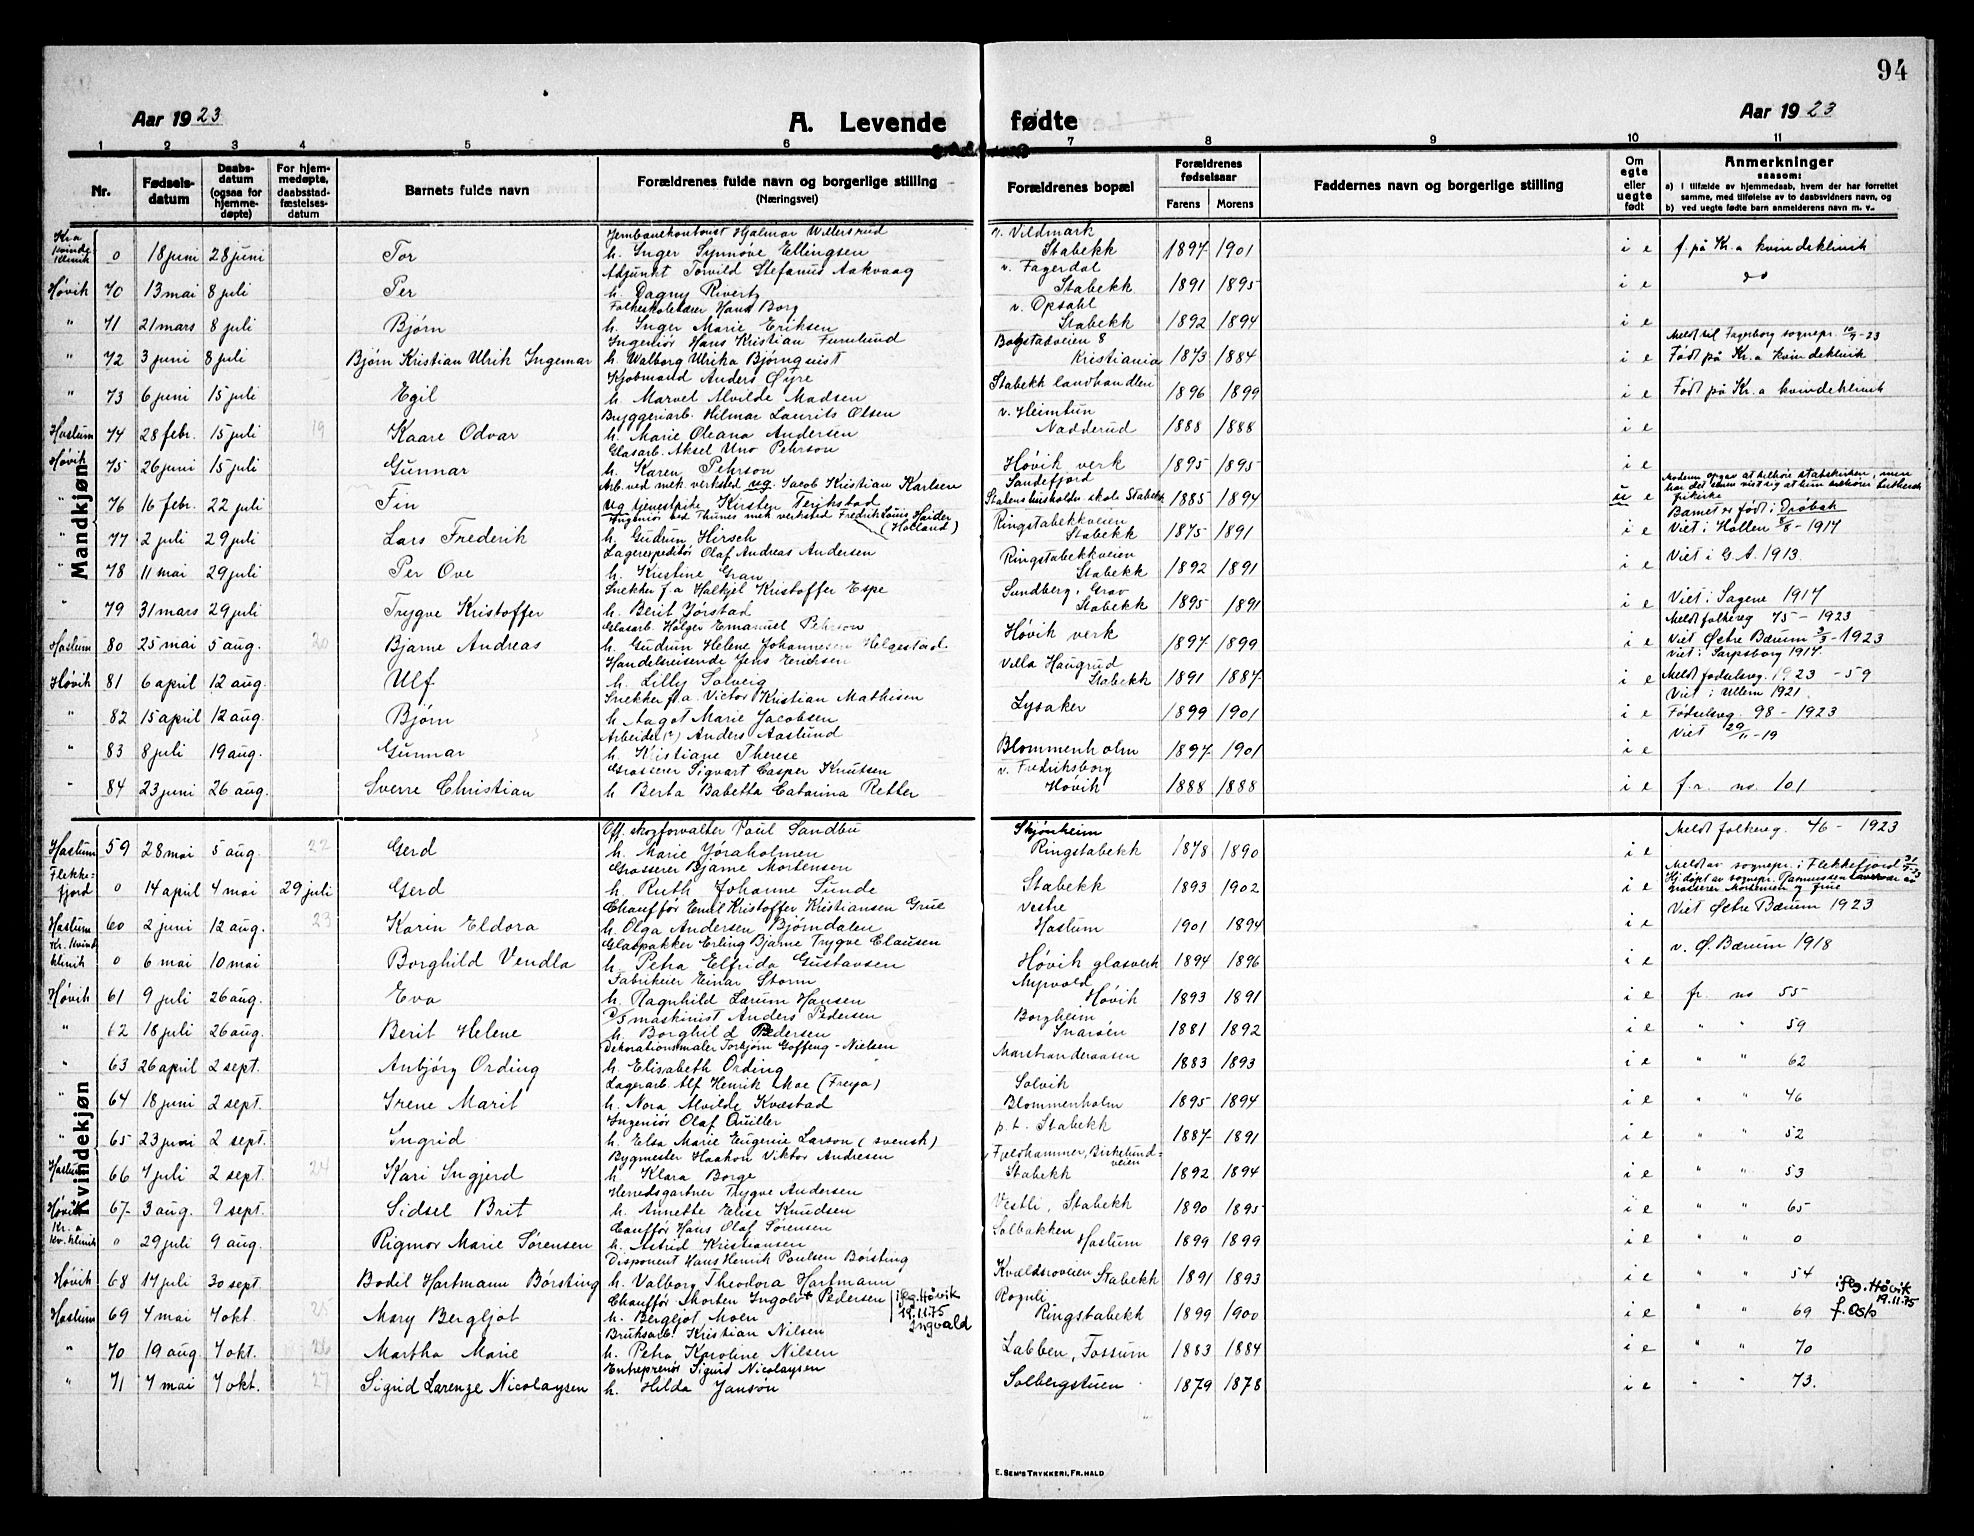 94
Aar 1923
A. Levende
fødte
Aar 1923
1 2 3 4 5 6 7 8 9 10 11
Nr.
Fødsels-
datum
Daabs-
datum
(ogsaa for
hjemme-
døpte)
For hjem-
medøpte,
daabsstad-
fæstelses-
datum
Barnets fulde navn
Forældrenes fulde navn og borgerlige stilling
(Næringsvei)
Forældrenes bopæl
Forældrenes
fødselsaar
Farens Morens
Faddernes navn og borgerlige stilling
Om
egte
eller
uegte
født
Anmerkninger
saasom:
a) i tilfælde av hjemmedaab, hvem der har forrettet
samme, med tilføielse av to daabsvidners navn, og
b) ved uegte fødte barn anmelderens navn m. v.
Mandkjøn
Kra kvinde klinik 0 18 juni 28 juni Tor
Jernbanekontorist Hjalmar Willersrud
h. Inger Synnøve Ellingsen
v. Vildmark
Stabekk 1897 1901 i e f. på Kr.a kvindeklinik
Høvik 70 13 mai 8 juli Per
Adjunkt Torvild Stefanus Aakvaag
h. Dagny Rivertz
v. Fagerdal
Stabekk 1891 1895 i e do
" 71 21 mars 8 juli Bjørn
Folkeskolelærer Hans Borg
h. Inger Marie Eriksen
v. Opsahl
Stabekk 1892 1894 i e
" 72 3 juni 8 juli Bjørn Kristian Ulrik Ingemar
Ingeniør Hans Kristian Furulund
h. Walborg Ulrika Bjørnquist
Bogstadveien 8
Kristiania 1873 1884 i e
Meldt til Fagerborg sognepr. 10/9-23
Født på Kr.a kvindeklinik
" 73 6 juni 15 juli Egil
Kjøbmand Anders Øyre
h. Marvel Alvilde Madsen
Stabekk landhandleri 1896 1899 i e Født på Kr.a kvindeklinik
Haslum 74 28 febr. 15 juli 19 Kaare Odvar
Byggeriarb. Hilmar Laurits Olsen
h. Marie Oleana Andersen
v. Heimtun
Nadderud 1888 1888 i e
Høvik 75 26 juni 15 juli Gunnar
Glasarb. Aksel Uno Pehrson
h. Karen Pehrson
Høvik verk 1895 1895 i e
" 76 16 febr. 22 juli Fin
Arb. ved mek. verksted ug. Jacob Kristian Karlsen
Ug tjenestpike Kirsten Terjestad
Sandefjord
Statens husholdn. skole Stabekk 1885 1894 u e
Moderen opgav at tilhøre statskirken, men
har det senere vist sig at hun tilhører luthersk
frikirke
Barnet er født i Drøbak
" 77 2 juli 29 juli Lars Frederik
Ingeniør ved Thunes mek verksted Fredrik Louis Haider (Holland)
h. Gudrun Hirsch
Ringstabekkveien
Stabekk 1875 1891 i e Viet i Hollen 8/8-1917
" 78 11 mai 29 juli Per Ove
Lagerexpeditør Olaf Andreas Andersen
h. Kristine Gran
Ringstabekkveien
Stabekk 1892 1891 i e Viet i G. A. 1913.
" 79 31 mars 29 juli Trygve Kristoffer
Snekker f.a Halkjel Kristoffer Espe
h. Berit Jørstad
Sundberg, Grav
Stabekk 1895 1891 i e Viet i Sagene 1917
Haslum 80 25 mai 5 aug. 20 Bjarne Andreas
Glasarb. Holger Emanuel Pehrson
h. Gudrun Helene Johannesen Helgestad
Høvik verk 1897 1899 i e
Meldt folkereg 75 - 1923
Viet Østre Bærum 3/3-1923
Høvik 81 6 april 12 aug. Ulf
Handelsreisende Jens Eriksen
h. Lilly Solveig
Villa Haugrud
Stabekk 1891 1887 i e
viet i Sarpsborg 1914.
Meldt fødselsreg. 1923 - 59
" 82 15 april 12 aug. Bjørn
Snekker f.a. Victor Kristian Mathisen
h Aagot Marie Jacobsen
Lysaker 1899 1901 i e
Viet i Ullern 1921.
Fødselsreg. 98 - 1923
" 83 8 juli 19 aug. Gunnar
Arbeider Anders Aaslund
h Kristiane Therese
Blommenholm 1897 1901 i e Viet 29/11-19
" 84 23 juni 26 aug. Sverre Christian
Grosserer Sigvart Casper Knutsen
h Berta Babetta Catarina Retter
v. Fredriksborg
Høvik 1888 1888 i e f. r. no 101
Kvindekjøn
Haslum 59 28 mai 5 aug. 22 Gerd
Off. skogforvalter Paul Sandbu
h. Marie Jøraholmen
Skjønheim
Ringstabekk 1878 1890 i e Meldt folkereg. 46 - 1923
Flekkefjord 0 14 april 4 mai 29 juli Gerd
Grosserer Bjarne Mortensen
h. Ruth Johanne Sunde
Stabekk 1893 1902 i e
Meldt av sognepr. i Flekkefjord
Hj døpt av sognepr. Rasmussen
grosserer Mortensen og frue
Haslum 60 2 juni 12 aug. 23 Karin Eldora
Chauffør Emil Kristoffer Kristiansen Grue
h. Olga Andersen Bjørndalen
Vestre
Haslum 1901 1894 i e Viet Østre Bærum 1923
Kr. kvind klinik 0 6 mai 10 mai Borghild Vendla
Glaspakker Erling Bjarne Trygve Clausen
h. Petra Elfrida Gustavsen
Høvik glasverk 1894 1896 i e v. Ø. Bærum 1918
Høvik 61 9 juli 26 aug. Eva
Fabrikeier Einar Storm
h. Ragnhild Lærum Hansen
Myrvold
Høvik 1893 1891 i e fr. no 55
" 62 18 juli 26 aug. Berit Helene
D/S maskinist Anders Pedersen
h. Borghild Pedersen
Borgheim
Snarøen 1881 1892 i e " " 59
" 63 26 april 2 sept. Anbjørg Ording
Dekorationsmaler Torbjørn Goffeng-Nielsen
h. Elisabeth Ording
Marstranderaasen 1883 1893 i e " " 62
" 64 18 juni 2 sept. Irene Marit
Lagerarb. Alf Henrik Moe (Freya)
h. Nora Alvilde Kvæstad
Solvik
Blommenholm 1895 1894 i e " " 46
" 65 23 juni 2 sept. Ingrid
Ingeniør Olaf Quiller
h. Elsa Marie Eugenie Larson (svensk)
p. t. Stabekk 1887 1891 i e " " 52
Haslum 66 7 juli 2 sept. 24 Kari Ingjerd
Bygmester Haakon Viktor Andresen
h Klara Borge
Fjeldhammer, Birkelundveien
Stabekk 1892 1894 i e " " 53
Høvik 67 3 aug. 9 sept. Sidsel Brit
Herredsgartner Trygve Andersen
h. Annette Elise Knudsen
Vestli, Stabekk 1890 1895 i e " " 65
Kr.a kv. klinik " 29 juli 9 aug. Rigmor Marie Sørensen
Chauffør Hans Olaf Sørensen
h. Astrid Kristiansen
Solbakken
Haslum 1899 1899 i e " " 0
Høvik 68 17 juli 30 sept. Bodil Hartmann Børsting
Disponent Hans Henrik Paulsen Børsting
h. Valborg Theodora Hartmann
Kvældsroveien Stabekk 1891 1893 i e " " 54
Haslum 69 4 mai 7 okt. 25 Mary Bergljot
Chauffør Morten Ingolv + Pedersen
h. Bergljot Moen
iflg. Høvik
19.11.75
Ingvald
Rognli
Ringstabekk 1899 1900 i e " " 69
iflg. Høvik
19.11.75
f. Oslo
" 70 19 aug. 7 okt. 26 Martha Marie
Bruksarb. Kristian Nilsen
h. Petra Karoline Nilsen
Labben, Fossum 1883 1884 i e " " 70
" 71 7 mai 7 okt. 27 Sigrid Larenze Nicolaysen
Entreprenør Sigurd Nicolaysen
h. Hilda Janson
Solbergstuen 1879 1878 i e " " 73.
E. SEM'S TRYKKERI, FR.HALD